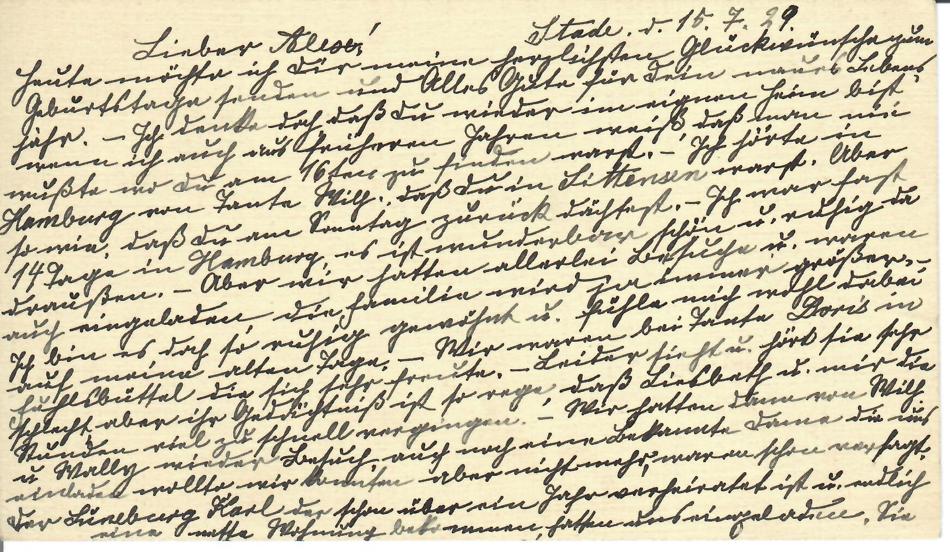 Stade. d. 15. 7. 29.
Lieber Alex!
Heute möchte ich Dir meine herzlichsten Glückwünsche zum
Geburtstage senden und Alles Gute für Dein neues Lebens
jahr. – Ich denke doch daß Du wieder im eignen Heim bist
wenn ich auch aus früheren Jahren weiß, daß man nie
wußte wo Du am 16ten zu finden warst. – Ich hörte in
Hamburg von Tante Wilh., daß Du in Sittensen warst. Aber
so wie, daß Du am Sonntag zurück dächtest. – Ich war fast
14 Tage in Hamburg, es ist wunderbar schön u. ruhig da
draußen. – Aber wir hatten allerlei Besuche u. waren
auch eingeladen die Familie wird ja immer größer. –
Ich bin es doch so ruhig gewöhnt u. fühle mich wohl dabei
auf meine alten Tage. – Wir waren bei Tante Doris in
Fuhlsbüttel die sich sehr freute. – Leider sieht u. hört sie sehr
schlecht, aber ihr Gedächtniß ist so rege daß Liesbeth u. mir die
Stunden viel zu schnell vergingen. – Wir hatten dann von Wilh.
u Wally wieder Besuch, auch noch eine bekannte Dame die uns
einladen wollte wir konnten aber nicht mehr, waren schon versagt.
Der Lüneburg Karl der schon über ein Jahr verheiratet ist u. endlich
eine nette Wohnung bekommen, hatten uns eingeladen. Sie